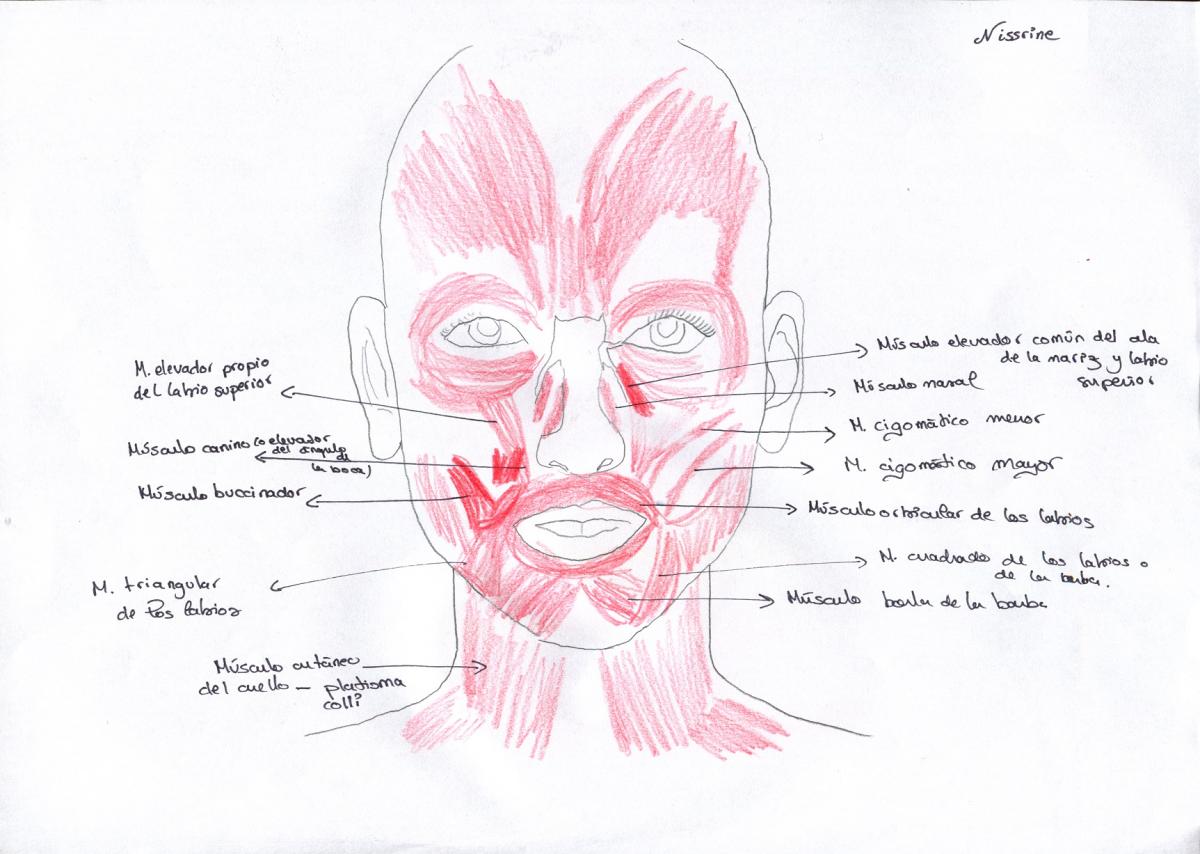 Nissrine
M. elevador propio
del labio superior
Músculo canino (o elevador
del ángulo
de
la boca)
Músculo buccinador
M. triangular
de los labios
Músculo cutáneo
del cuello – platisma
colli
Músculo elevador común del ala
de la nariz y labio
superior
Músculo nasal
M. cigomático menor
M. cigomático mayor
Músculo orbicular de los labios
M. cuadrado de los labios o
de la barba.
Músculo borla de la barba